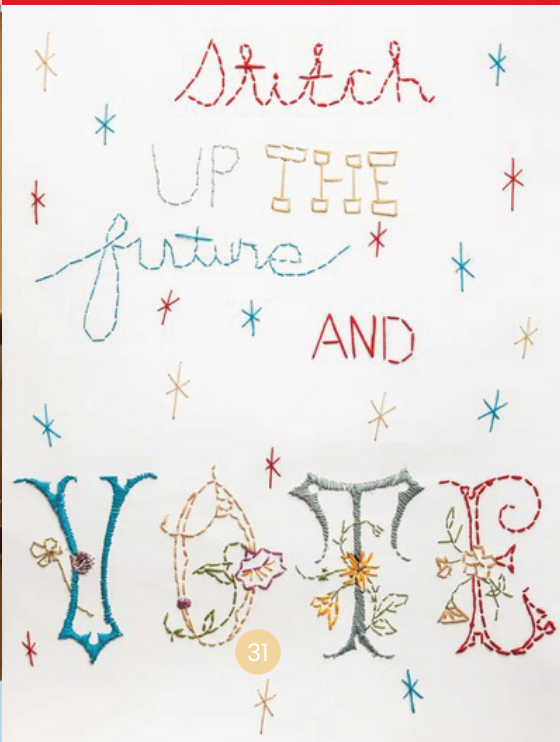 Stitch
UP THE
future
AND
VOTE
31